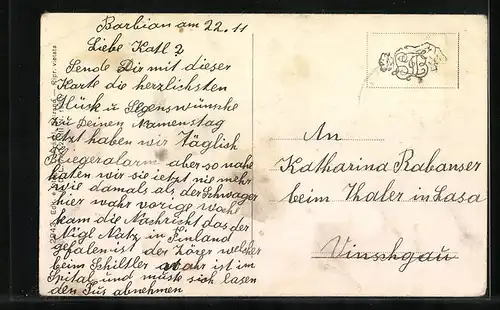 Barbian am 22.11
Liebe Katl 2
Sende Dir mit dieser
Karte die herzlichsten
Glück u Segenswünsche
zu Deinen Namenstag
ietzt haben wir Täglich
Fliegeralarm aber so nahe
haten wir sie ietzt nie mehr
wie damals als der Schwager
hier wahr vorige wahr
kam die Nachricht das der
Nigl Natz in Finland
gefalen ist der Zörer welcher
beim Schiltler wahr ist im
Spital und muste sich lasen
den Fus abnehmen
An
Katharina Rabanser
beim Thaler in Lasa
Vinschgau
2943
Ripr. vietata